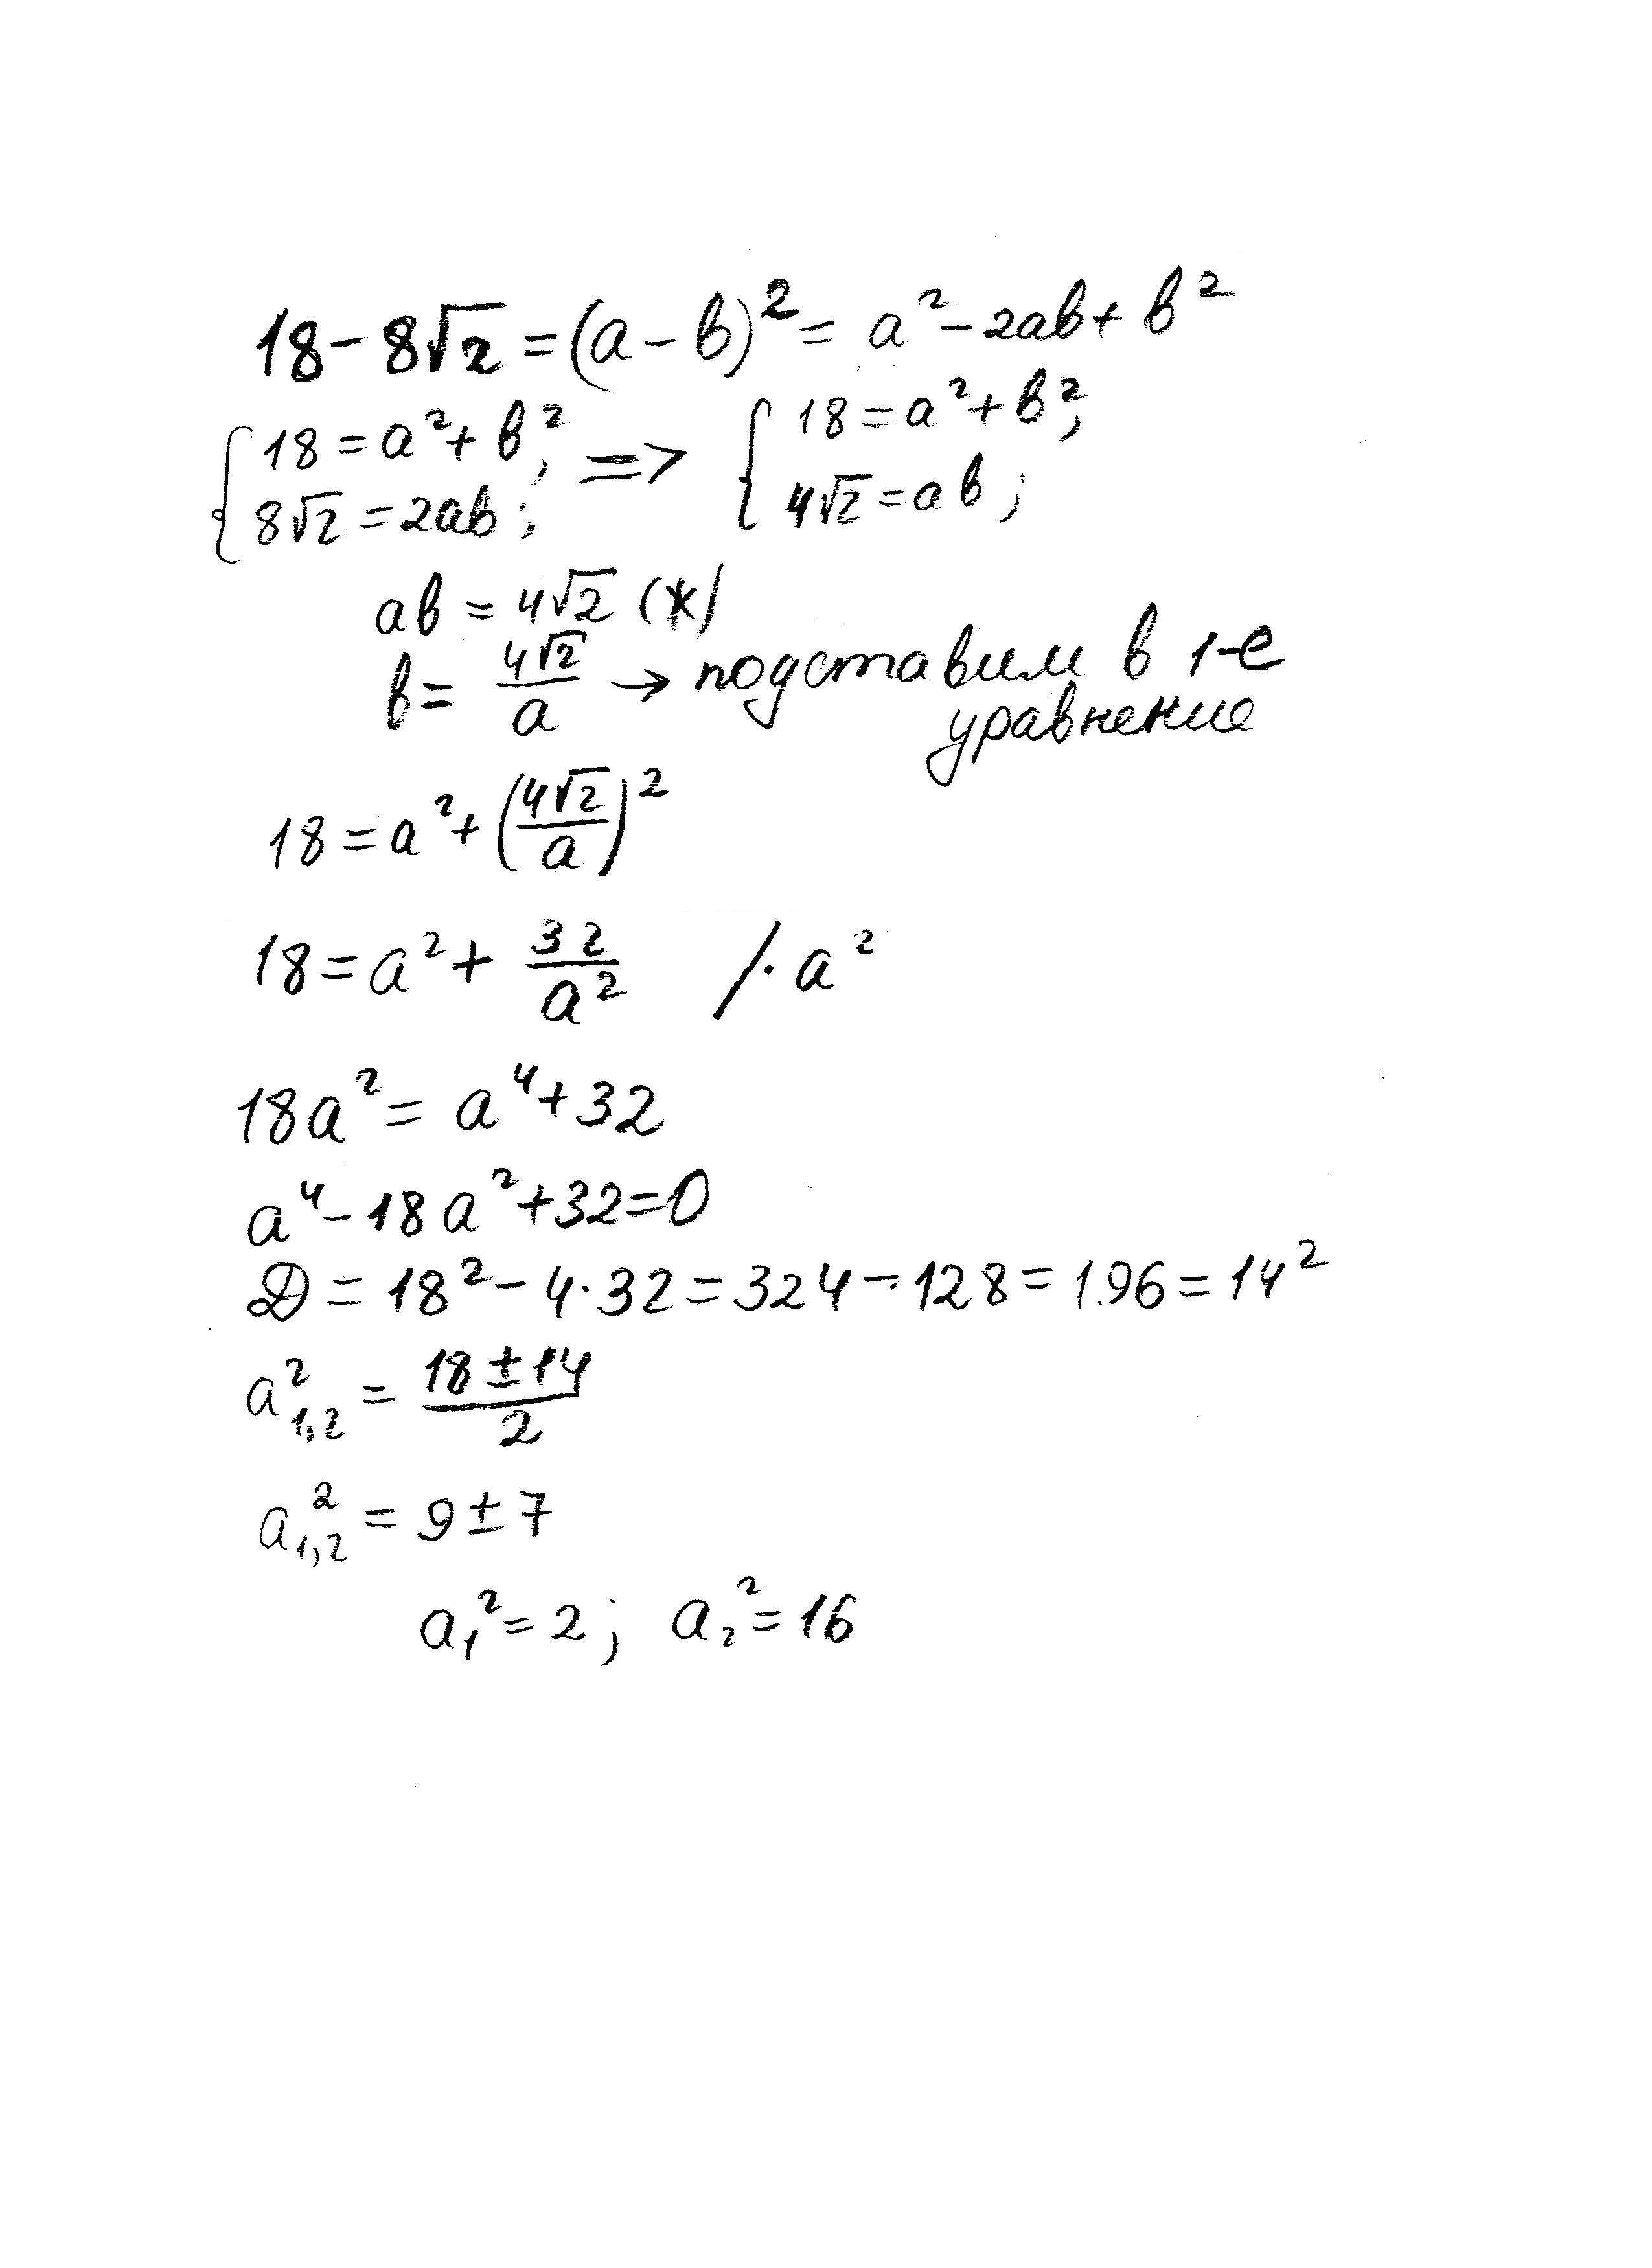 18 - 8√2 = (a - b)² = a² - 2ab + b²
{ 18 = a² + b²; => { 18 = a² + b²;
{ 8√2 = 2ab; { 4√2 = ab;
ab = 4√2 (*)
b = 4√2/a → подставим в 1-е
уравнение
18 = a² + (4√2/a)²
18 = a² + 32/a² /· a²
18a² = a⁴ + 32
a⁴ - 18a² + 32 = 0
D = 18² - 4·32 = 324 - 128 = 196 = 14²
a²₁,₂ = (18 ± 14)/2
a²₁,₂ = 9 ± 7
a₁² = 2; a₂² = 16